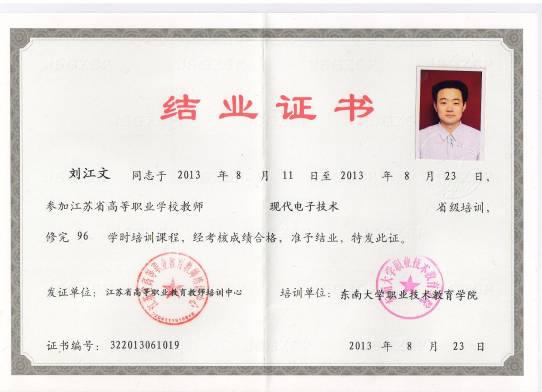 结业证书
刘江文 同志于 2013 年 8 月 11 日至 2013 年 8 月 23 日，
参加江苏省高等职业学校教师 现代电子技术 省级培训，
修完 96 学时培训课程，经考核成绩合格，准予结业，特发此证。
发证单位：江苏省高等职业教育教师培训中心 培训单位：东南大学职业技术教育学院
证书编号：322013061019 2013 年 8 月 23 日